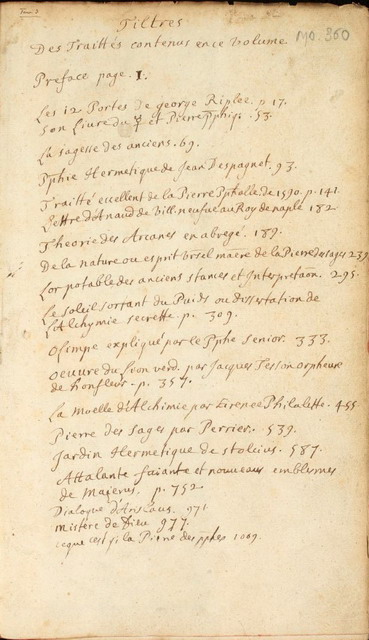 Tom. 3
Tiltres
Des Traittés contenus en ce Volume.
MO. 360
Preface page. 1.
Les 12 Portes de george Riplee. p 17.
Son livre du ☿ et Pierre pphiq. 53.
La sagesse des anciens. 69.
Pphie Hermetique de Jean Despagnet. 93.
Traitté eccellent de la Pierre Ppholle. de 1590. p. 141.
Lettre d'Arnaud de Villeneufve au Roy de naple 182
Theorie des Arcanes en abregé. 189.
De la nature ou esprit univsel matre de la Pierre des sages 239
L'or potable des anciens stances et Interpretaõn. 295.
Le soleil sortant du Puids ou dissertation de
L'Alchymie secrette. p. 309.
Olimpe expliqué par le Pphe senior. 333.
Oeuvre du Lion verd. par Jacques Tesson orpheuvre
de honfleur. p. 357.
La Moelle d'Alchimie par Eirenee Philalette. 455
Pierre des Sages par Perrier. 539.
Jardin Hermetique de Stolcius. 587.
Attalante fuiante et nouveaux emblesmes
de Majerus. p. 752.
Dialogue d'Arislaus. 971
Mistere de Dieu 977.
ce que c'est q̃ la Pierre des pphes 1009.